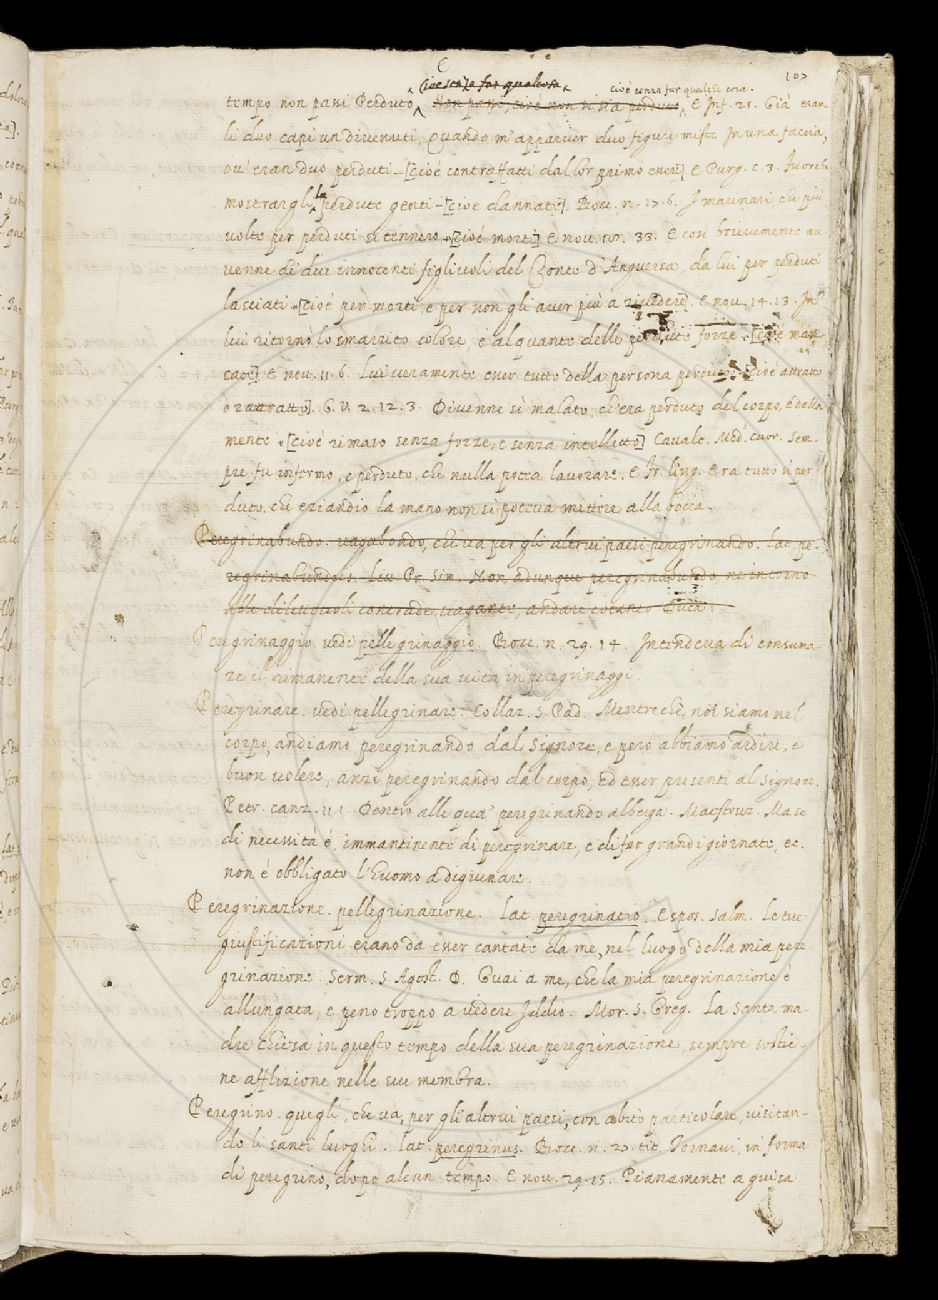 107
cioè senza far qualcosa
cioè senza far qualche cosa.
tempo non passi Perduto Non passi, cioè non si sia perduto, E Inf. 25. Già eran
li duo capi un divenuti, Quando m'apparver duo figure miste In una faccia,
ov' eran duo perduti - [cioè contraffatti dal lor primo essere] E Purg. c. 3.
mostrargli le perdute genti - [cioè dannate]. Bocc. n. 17. 6. I marinari che più
volte per perduti si tennero [cioè morti] E nov. 33. E così brievemente av
venne de due innocenti figlivoli del Conte d'Anguersa, da lui per perduti
lasciati [cioè per morti, e per non gli aver più a rivedere]. E nov. 14. 13. In
lui ritornò lo smarrito colore, e alquante delle perdute forze [cioè man
cate] E nov. 11. 6. Lui veramente esser tutto della persona perduto cioè attratto
o rattratto]. G. V. 2. 12. 3. Divenne sì malato, ch'era perduto del corpo, e della
mente [cioè rimaso senza forze, e senza intelletto] Cavalc. Med. cuor. Sem-
pre fu infermo, e perduto, che nulla potea lavorare. E Fr. ling. Era tutto sì per
duto, che eziandio la mano non si poteva mettere alla bocca.
Peregrinabundo. vagabondo, che va per gli altrui paesi peregrinando. Lat. pe-
regrinabundus. Non adunque peregrinabundo ne intorno
alle dilettevoli contrade vagante, andare
Peregrinaggio. vedi pellegrinaggio. Bocc. n. 29. 14. Intendeva di consuma
re il rimanente della sua vita in peregrinaggi.
Peregrinare. vedi pellegrinare. Collaz. S. Pad. Mentreche noi siamo nel
corpo, andiamo peregrinando dal Signore, e però abbiamo ardire, e
buon volere, anzi peregrinando dal corpo, ed esser presenti al Signore.
Petr. canz. Dentro alle qua' peregrinando alberga. Maestruz. Ma se
di necessità è immantinente di peregrinare, e di far grandi giornate, ec.
non è obbligato l'huomo a digiunare.
Peregrinazione. pellegrinazione. Lat. peregrinatio. Espos. Salm. Le tue
giustificazioni erano da esser cantate da me, nel luogo della mia pere
grinazione. Serm. S. Agost. D. Guai a me, che la mia peregrinazione è
allungata, e peno troppo a vedere Iddio. Mor. S. Greg. La Santa ma-
dre Chiesa in questo tempo della sua peregrinazione, sempre sostie-
ne afflizione nelle sue membra.
Peregrino. quegli, che va, per gli altrui paesi, con abito particolare, visitan-
do li santi luoghi. Lat. peregrinus. Bocc. n. 27. tit. Tornavi, in forma
di peregrino, dopo alcun tempo. E nov. 29. 15. Pianamente a guisa